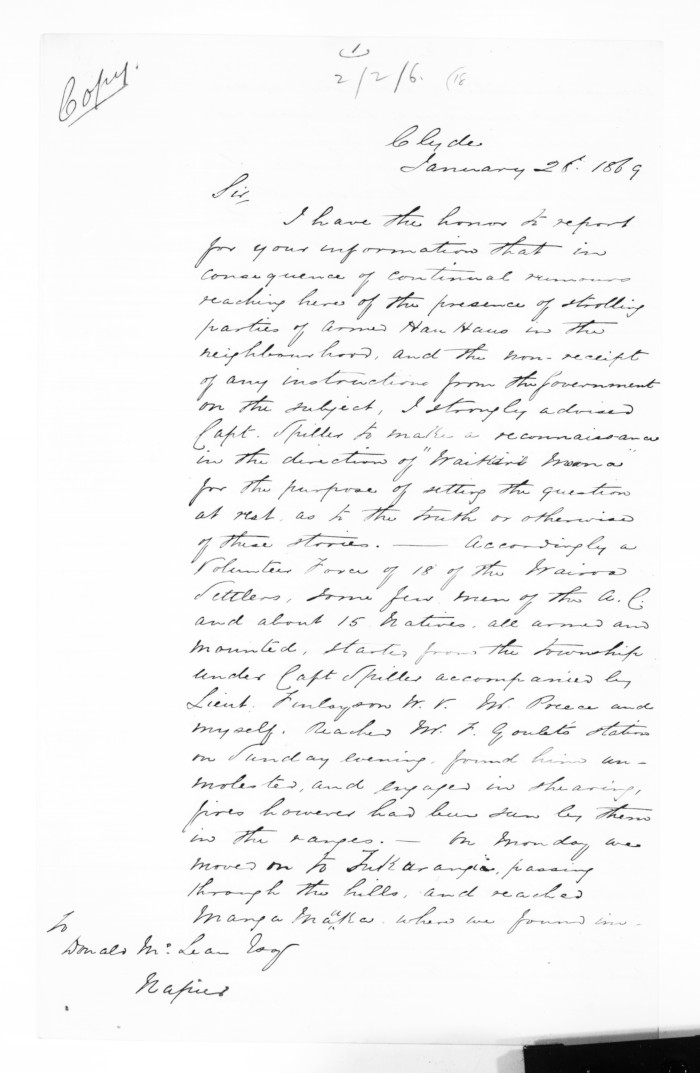 (1)
2/2/6. (18
Copy.
Clyde
January 28th. 1869
Sir
I have the honor to report
for your information that in
consequence of continual rumours
reaching here of the presence of strolling
parties of armed Hau Haus in the
neighbourhood, and the non-receipt
of any instructions from the Government
on the subject, I strongly advised
Capt. Spiller to make a reconnaissance
in the direction of "Waikari Moana"
for the purpose of setting the question
at rest, as to the truth or otherwise
of these stories. — Accordingly a
Volunteer Force of 18 of the Wairoa
Settlers, some few men of the A.C.
and about 15 Natives, all armed and
mounted, started from the township
under Capt Spiller accompanied by
Lieut. Finlayson W.V. Mr. Preece and
myself. Reached Mr. F. Goulet's station
on Sunday evening, found him un-
molested, and engaged in shearing,
fires however had been seen by them
in the ranges. — On Monday we
moved on to Tukarangia, passing
through the hills, and reached
Manga Maaka where we found im-
To
Donald McLean Esq
Napier